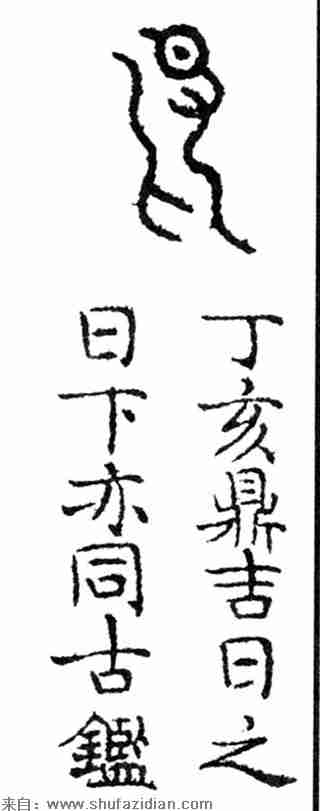 丁亥鼎吉日之
日下亦同古鑑
来自：www.shufazidian.com